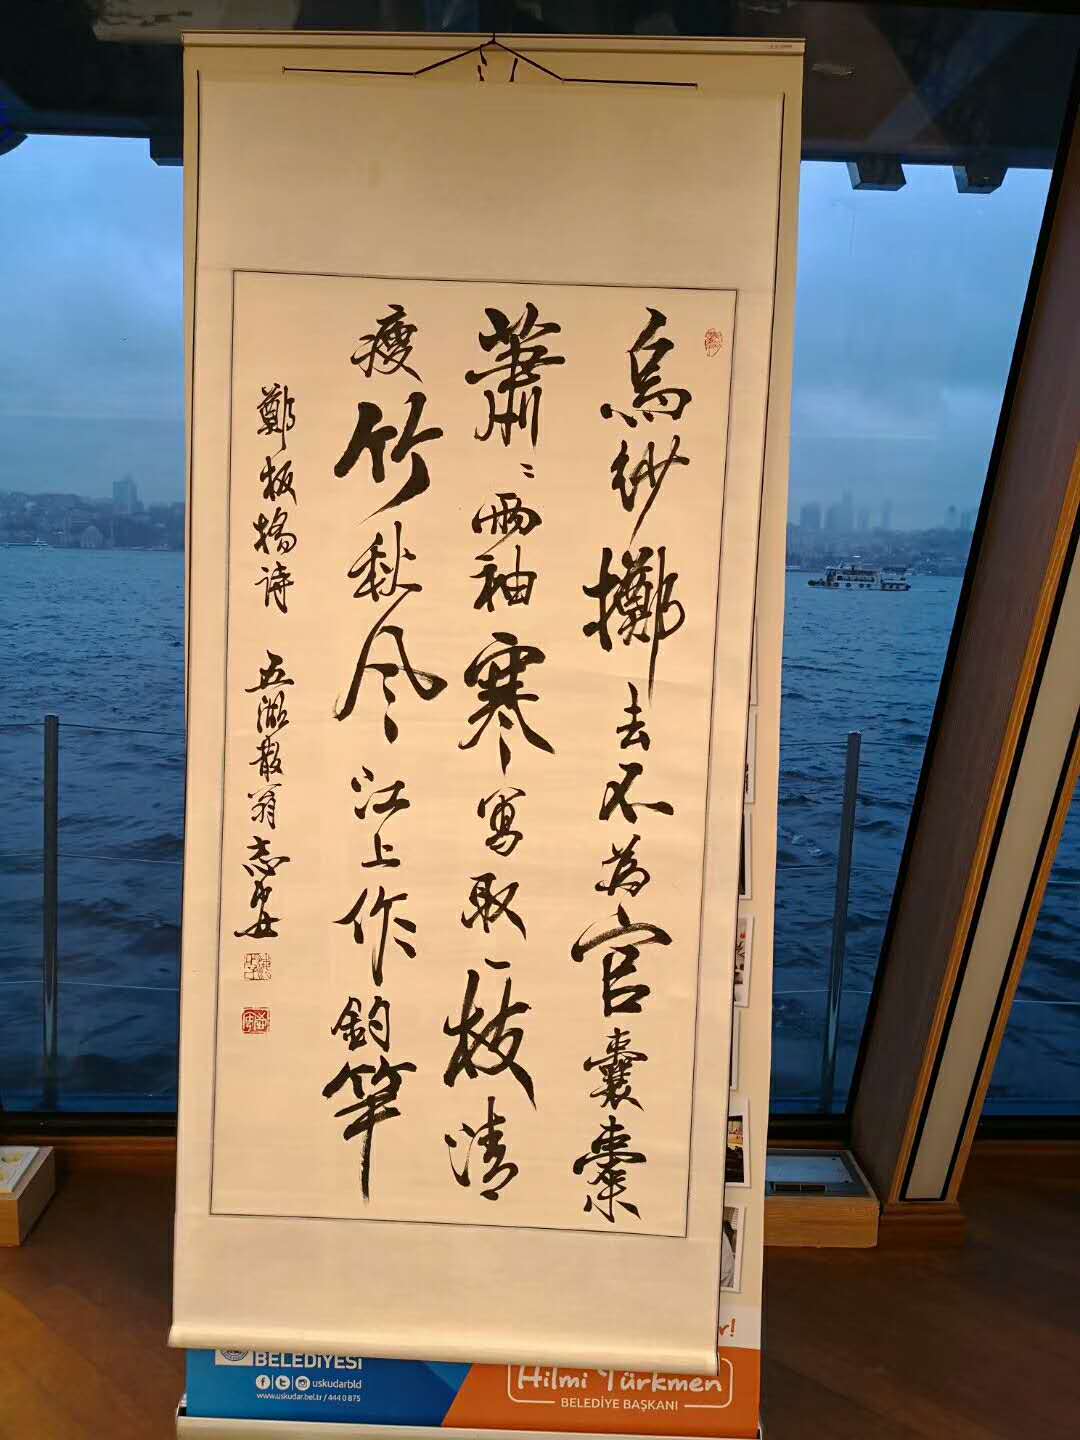 烏紗擲去不為官囊橐
蕭〻兩袖寒寫取一枝清
瘦竹秋风江上作釣竿
鄭板橋诗 五湖散翁志安
r!
BELEDİYESİ
uskudarbld
www.uskudar.bel.tr / 444 0 875
Hilmi Türkmen
BELEDİYE BAŞKANI